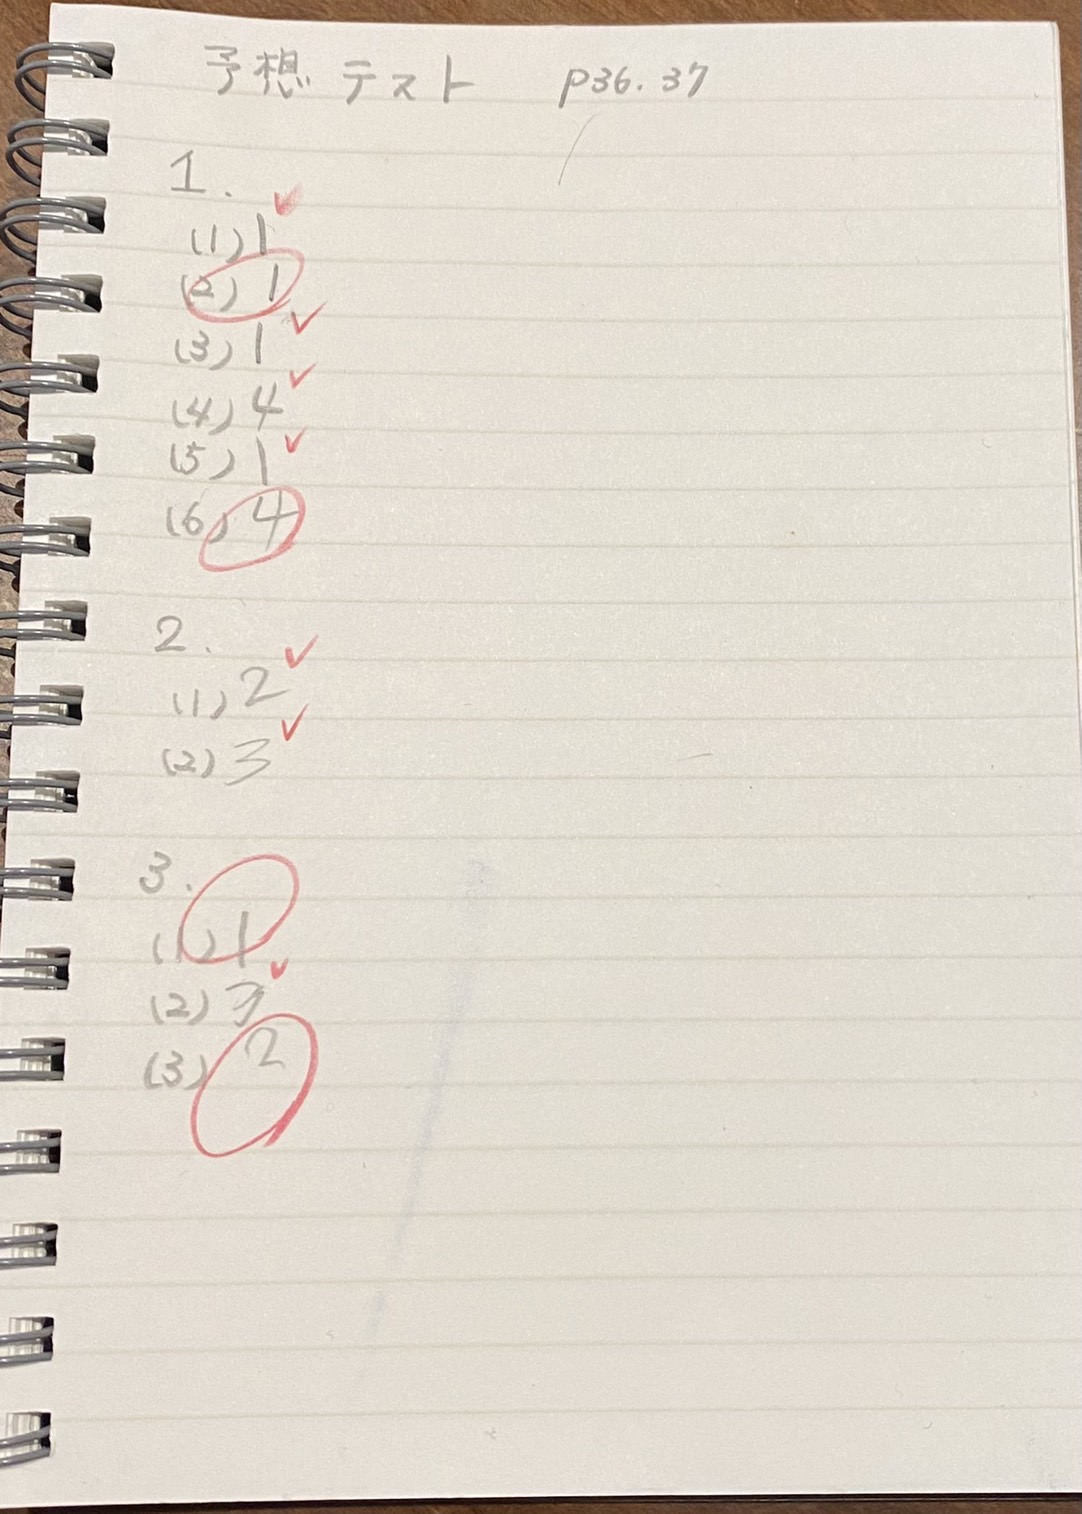 予想テスト p36.37
1.
(1) 1
(2) 1
(3) 1
(4) 4
(5) 1
(6) 4
2.
(1) 2
(2) 3
3.
(1) 1
(2) 3
(3) 2